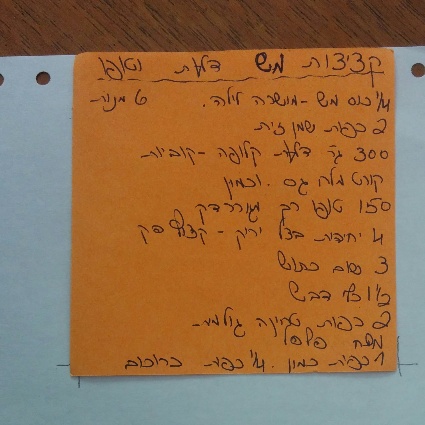 קציצות מש דלעת וטופו
1/4 כוס מש - מושרה לילה. 6 מנות
2 כפות שמן זית
300 גר' דלעת קלופה - קוביות
קורט מלח גס. וכמון
150 טופו רך מגורדק
4 יחידות בצל ירוק - קצוץ דק
3 שום כתוש
1/2 כף דבש
2 כפות טחינה גולמית
מלח פלפל
1 כפית כמון. 1/4 כפית כורכום